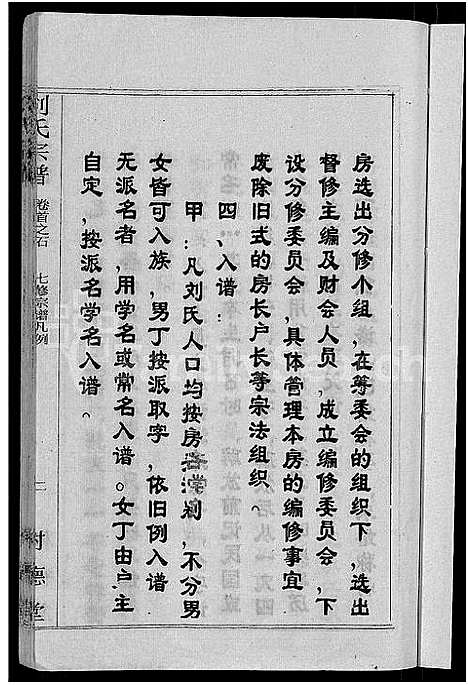 房选出分修小组，在筹委会的组织下，选出
督修主编及财会人员，成立编修委员会，下
设分修委员会，具体管理本房的编修事宜
废除旧式的房长户长等宗法组织。
四、入谱：
甲：凡刘氏人口均按房各学制，不分男
女皆可入族，男丁按派取字，依旧例入谱
无派名者，用学名或常名入谱。女丁由户主
自定，按派名学名入谱。
刘氏宗谱 卷首之右 七修宗谱凡例 二 树德堂